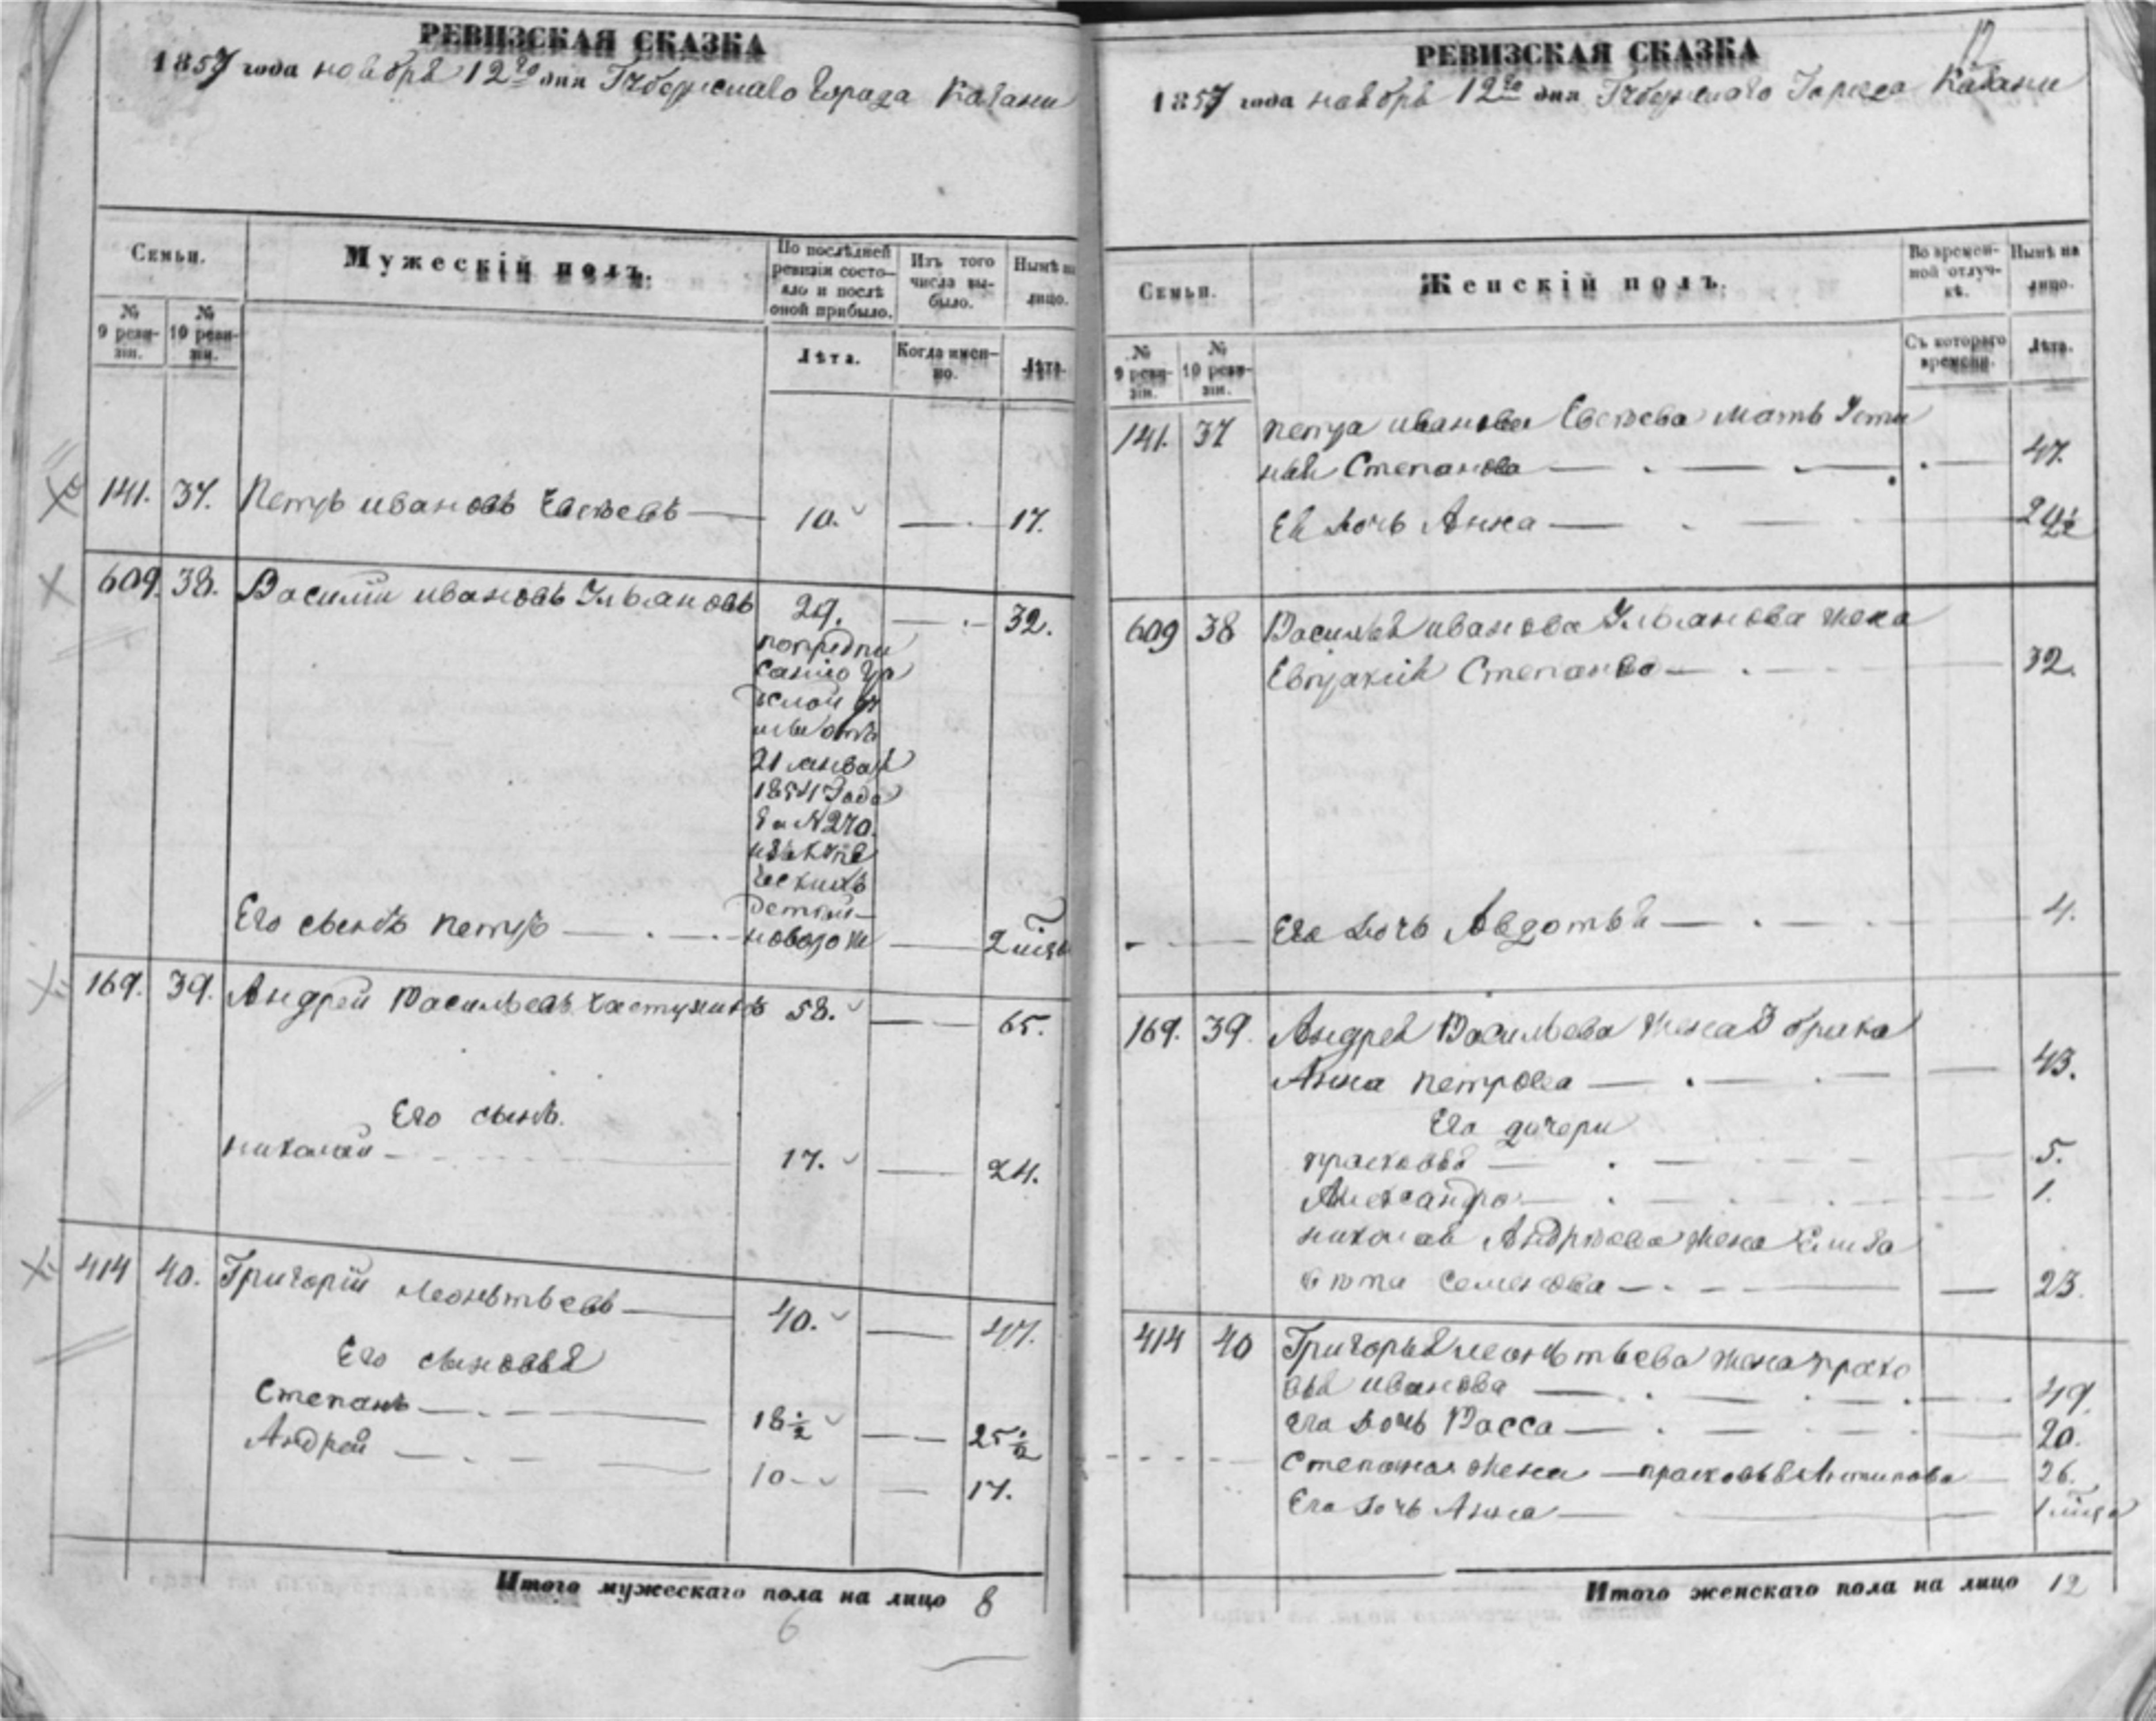 РЕВИЗСКАЯ СКАЗКА
1857 года ноября 12го дня Губернскаго города Казани
Семьи.
Мужескій полъ.
По послѣдней ревизіи состояло и послѣ оной прибыло.
Изъ того числа выбыло.
Нынѣ на лицо.
№ 9 ревизіи.
№ 10 ревизіи.
Лѣта.
Когда именно.
Лѣта.
141. 37. Петръ Ивановъ Евсѣевъ 10. 17.
609. 38. Василій Ивановъ Ульяновъ 29. 32.
по предпи
санію
21 января
1854 года
за № 270.
изъ купе
ческихъ
детей
Его сынъ Петръ новорож 2 мѣся
169. 39. Андрей Васильевъ 58. 65.
Его сынъ.
Николай 17. 24.
414 40. Григорій Леонтьевъ 40. 47.
Его сыновья
Степанъ 18½ 25½
Андрей 10 17.
Итого мужескаго пола на лицо 8
6
12
РЕВИЗСКАЯ СКАЗКА
1857 года ноября 12го дня Губернскаго Города Казани
Семьи.
Женскій полъ.
Во временной отлучкѣ.
Нынѣ на лицо.
№ 9 ревизіи.
№ 10 ревизіи.
Съ котораго времени.
Лѣта.
141. 37 Петра Иванова Евсѣева мать Усти
нья Степанова 47.
Ея дочь Анна 24½
609 38 Василья Иванова Ульянова жена
Евдокія Степанова 32.
Его дочь Авдотья 4.
169. 39. Андрея Васильева жена 3 брака
Анна Петрова 43.
Его дочери
Прасковья 5.
Александра 1.
Николая Андрѣева жена Елиза
вѣта Семенова 23.
414 40 Григорья Леонтьева жена Праско
вья Иванова 49.
Его дочь Васса 20.
Степанова жена Прасковья Антипова 26.
Его дочь Анна 1 мѣся
Итого женскаго пола на лицо 12